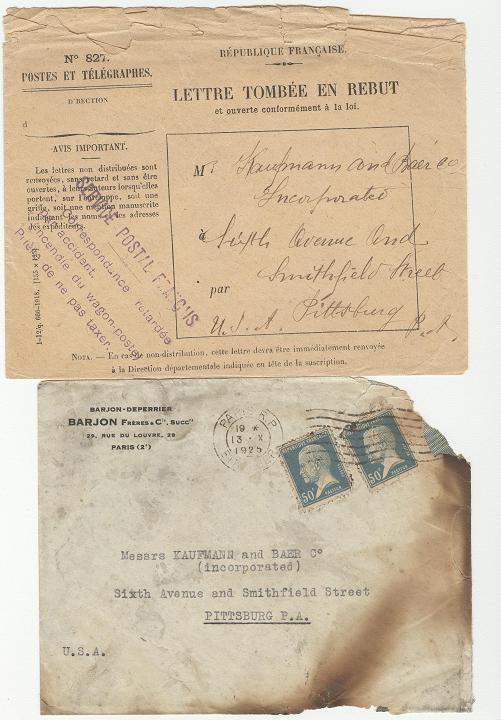 Nº 827.
POSTES ET TÉLÉGRAPHES.
DIRECTION
d
AVIS IMPORTANT.
Les lettres non distribuées sont
renvoyées, sans retard et sans être
ouvertes, à leurs auteurs lorsqu'elles
portent, sur l'enveloppe, soit une
griffe, soit une mention manuscrite
indiquant les noms et les adresses
des expéditeurs.
1-12/q. 660-1918.
RÉPUBLIQUE FRANÇAISE.
LETTRE TOMBÉE EN REBUT
et ouverte conformément à la loi.
M. Kaufmann and Baer Co
Incorporated
à Sixth Avenue And
Smithfield Street
par Pittsburg
U.S.A. P.A.
SERVICE POSTAL FRANÇAIS
Correspondance retardée
accident.
Incendie du wagon-postal
Prière de ne pas taxer.
NOTA. — En cas de non-distribution, cette lettre devra être immédiatement renvoyée
à la Direction départementale indiquée en tête de la suscription.
BARJON-DEPERRIER
BARJON FRÈRES & Cie, Succrs
29, RUE DU LOUVRE, 29
PARIS (2e)
PARIS R.P.
19 *
13 - X
1925
RÉPUBLIQUE FRANÇAISE
50c
PASTEUR
RÉPUBLIQUE FRANÇAISE
50c
PASTEUR
Messrs KAUFMANN and BAER Co
(incorporated)
Sixth Avenue and Smithfield Street
PITTSBURG P.A.
U.S.A.